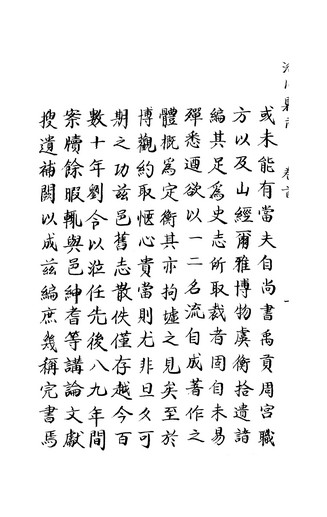 或未能有當夫自尚書禹貢周宮職
方以及山經爾雅博物虞衡拾遺諸
編其足為史志所取裁者固自未易
殫悉迺欲以一二名流自成著作之
體概為定衡其亦拘墟之見矣至於
博觀約取愜心貴當則尤非旦夕可
期之功茲邑舊志散佚僅存越今百
數十年劉令以涖任先後八九年間
案牘餘暇輒與邑紳耆等講論文獻
搜遺補闕以成茲編庶幾稱完書焉